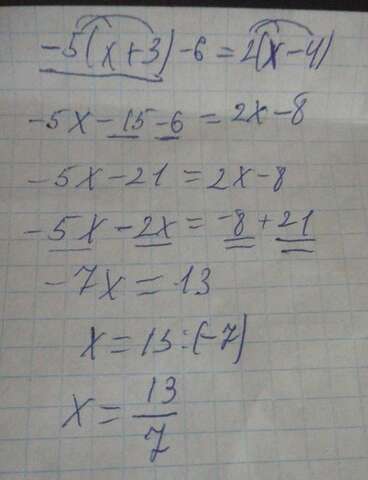 -5(x+3)-6=2(x-4)
-5x-15-6=2x-8
-5x-21=2x-8
-5x-2x=-8+21
-7x=13
x=13:(-7)
x=13/7